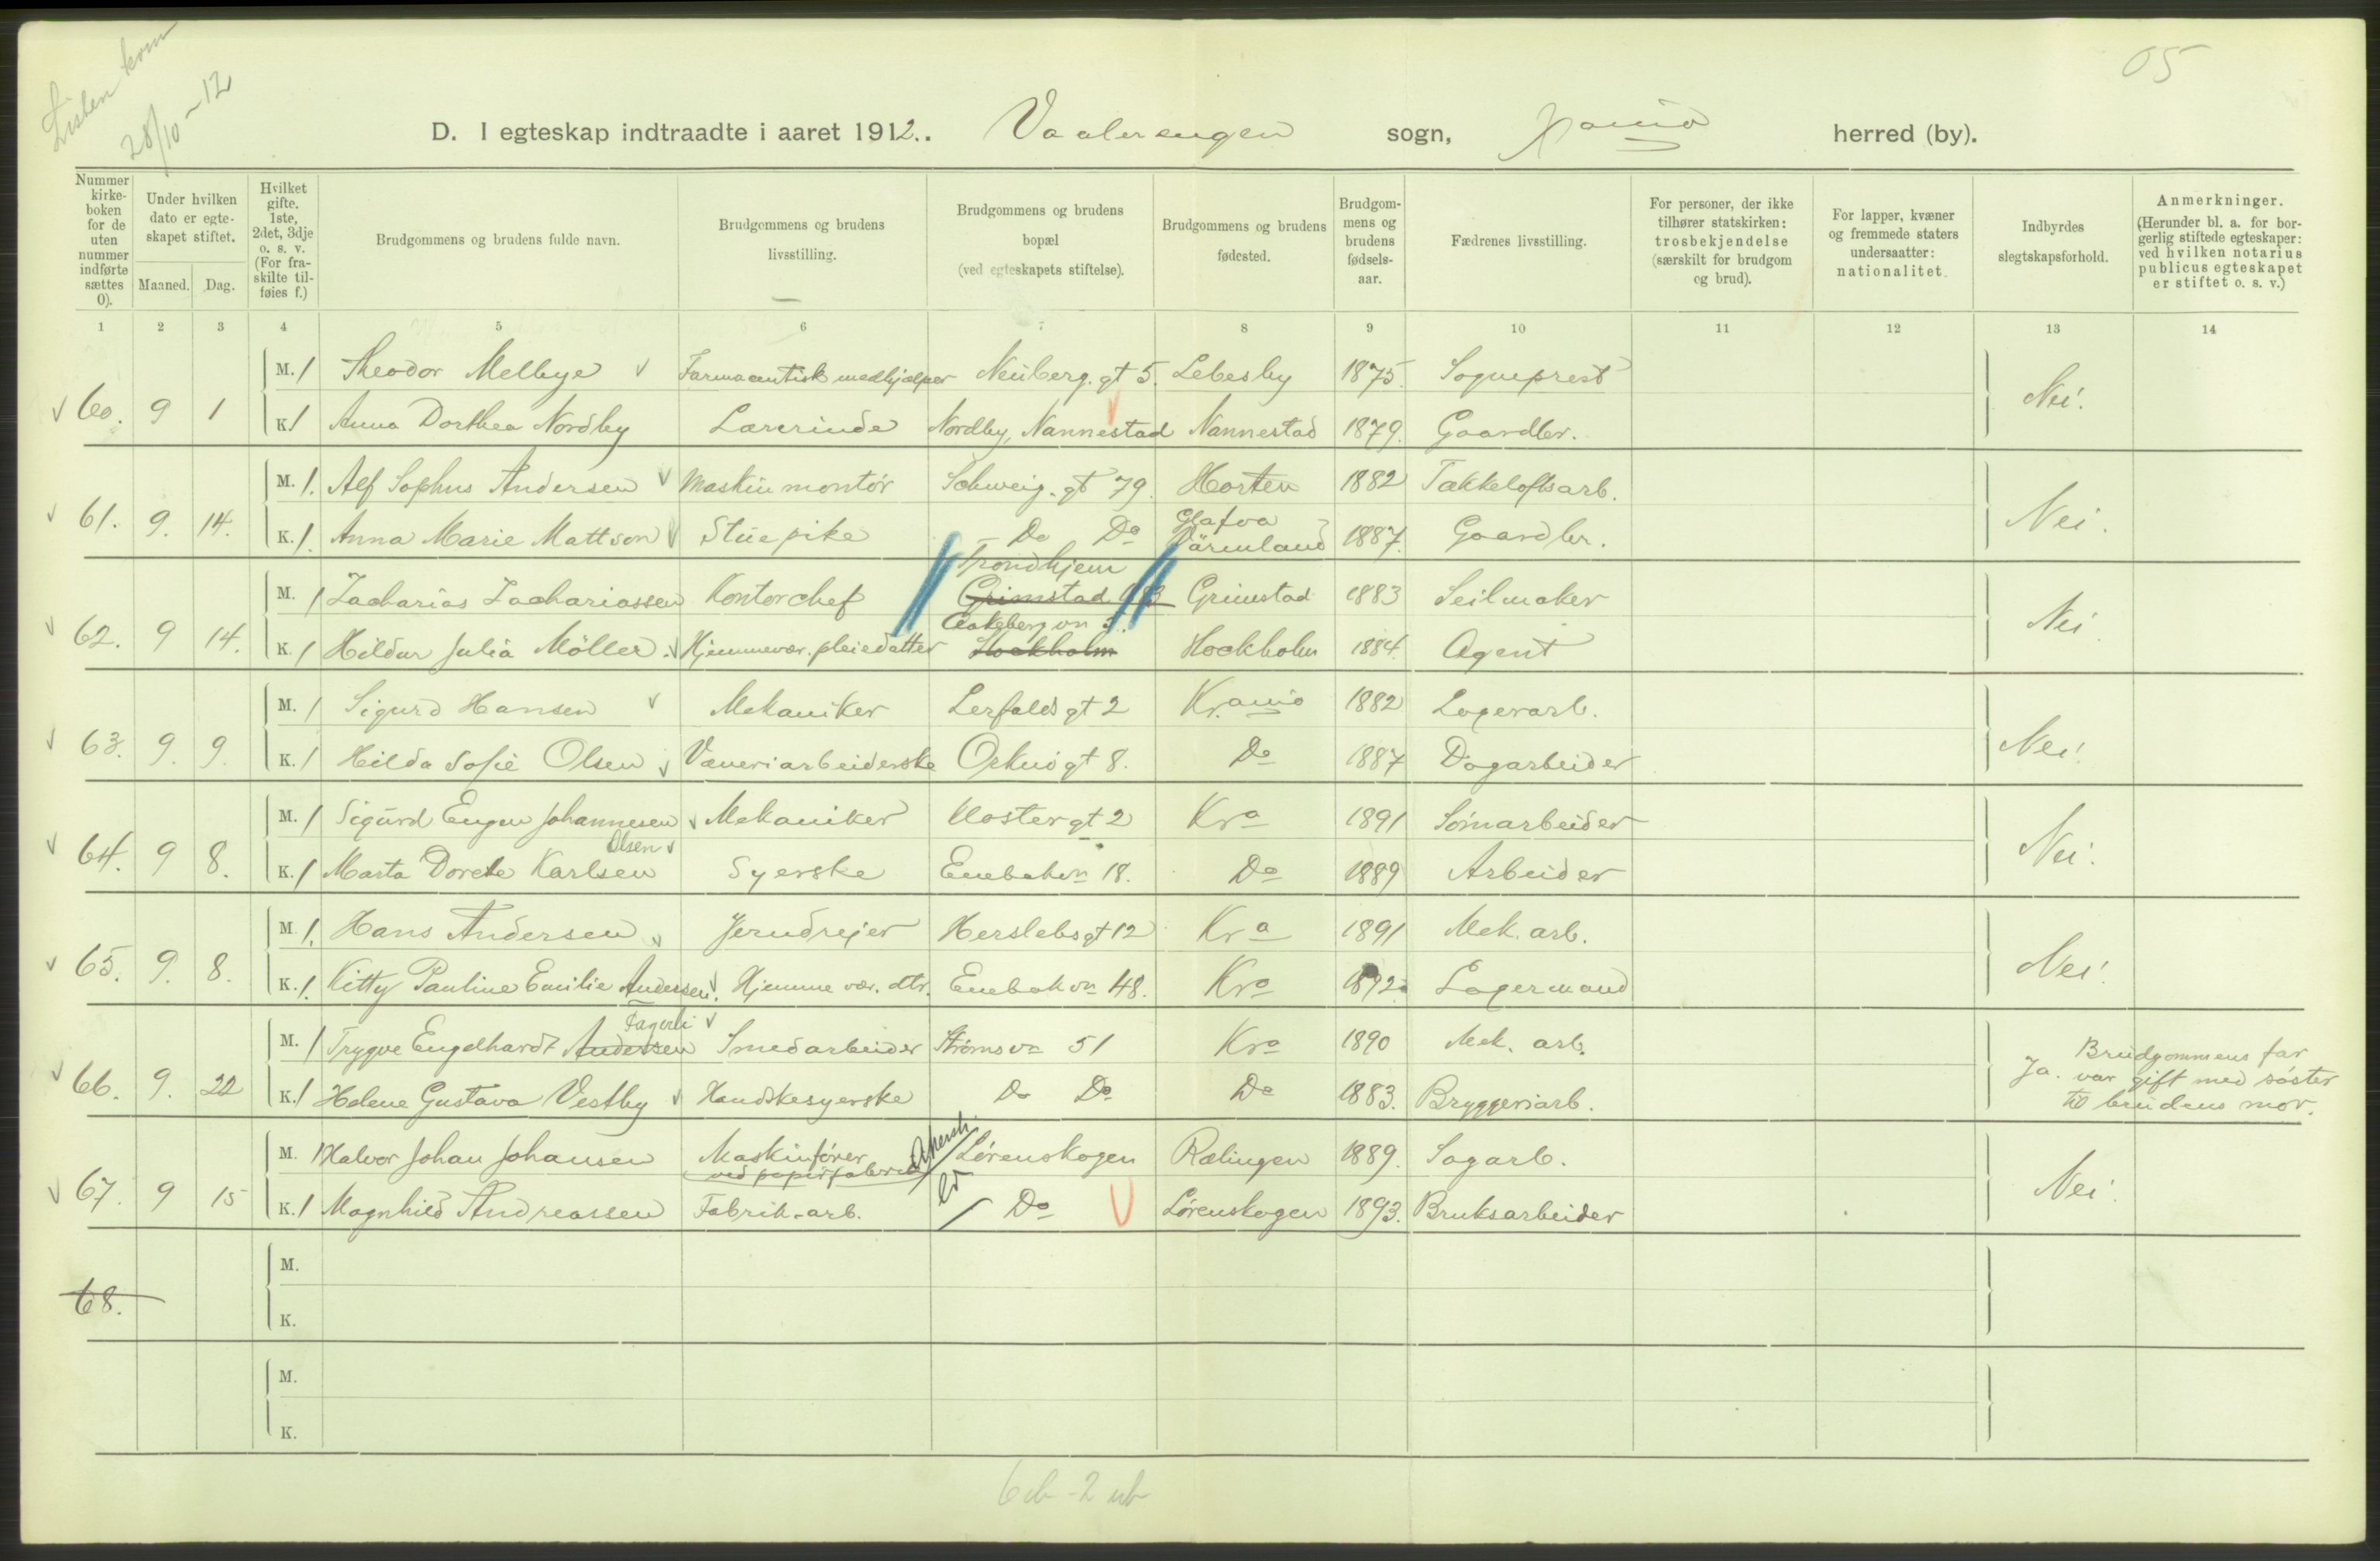 Listen kom
28/10-12
05
D. I egteskap indtraadte i aaret 1912.. Vaalerengen sogn, Xania herred (by).
Nummer kirkeboken for de uten nummer indførte sættes 0).
Under hvilken dato er egteskapet stiftet.
Maaned. Dag.
Hvilket gifte. 1ste, 2det, 3dje o. s. v. (For fraskilte tilføies f.)
Brudgommens og brudens fulde navn.
Brudgommens og brudens livsstilling.
Brudgommens og brudens bopæl (ved egteskapets stiftelse).
Brudgommens og brudens fødested.
Brudgommens og brudens fødselsaar.
Fædrenes livsstilling.
For personer, der ikke tilhører statskirken: trosbekjendelse (særskilt for brudgom og brud).
For lapper, kvæner og fremmede staters undersaatter: nationalitet.
Indbyrdes slegtskapsforhold.
Anmerkninger. (Herunder bl. a. for borgerlig stiftede egteskaper: ved hvilken notarius publicus egteskapet er stiftet o. s. v.)
1 2 3 4 5 6 7 8 9 10 11 12 13 14
M. 1 Theodor Melbye Farmaceutisk medhjælper Neuberg. gt 5. Lebesby 1875. Sogneprest
60. 9 1 Nei.
K. 1 Anna Dorthea Nordby Lærerinde Nordby, Nannestad Nannestad 1879. Gaardbr.
M. 1. Alf Sophus Andersen Maskinmontör Schweig. gt 79. Horten 1882 Takkeloftsarb.
61. 9. 14. Nei.
K. 1. Anna Marie Mattson Stuepike Do Do Glafva Värmland 1887. Gaardbr.
Trondhjem
M. 1 Zacharias Zachariassen Kontorchef Grimstad Grimstad 1883 Seilmaker
62. 9 14. Nei.
Ekeberg vn
K. 1 Hildur Julia Möller. Hjemmevær. pleiedatter Stockholm Stockholm 1884. Agent
M. 1 Sigurd Hansen Mekaniker Lerfalds gt 2 Kr.ania 1882 Lagerarb.
63. 9. 9. Nei.
K. 1 Hilda Sofie Olsen Væveriarbeiderske Orknö gt 8. Do 1887 Dagarbeider
M. 1 Sigurd Eugen Johannesen Mekaniker Kloster gt 2 Kra 1891 Sömarbeider
64. 9 8. Nei.
Olsen
K. 1 Marta Dorete Karlsen Syerske Enebak vn 18. Do 1889 Arbeider
M. 1. Hans Andersen Jerndreier Herslebs gt 12 Kra 1891 Mek. arb.
65. 9. 8. Nei.
K. 1. Kitty Pauline Emilie Andersen. Hjemme vær. dtr. Enebak vn 48. Kra 1892 Lagermand
Fagerli
M. 1 Trygve Engelhardt Andersen Smedarbeider Strömsvn 51 Kra 1890 Mek. arb.
66. 9. 22 Ja. Brudgommens far var gift med söster til brudens mor.
K. 1 Helene Gustava Vestby Handskesyerske Do Do Do 1883. Bryggeriarb.
M. 1 Halvor Johan Johansen Maskinförer ved papirfabrik Akersh. Lörenskogen Rælingen 1889. Sagarb.
67. 9 15 Nei.
K. 1 Magnhild Andreassen Fabrik-arb. Do Lörenskogen 1893. Bruksarbeider
M.
68.
K.
M.
K.